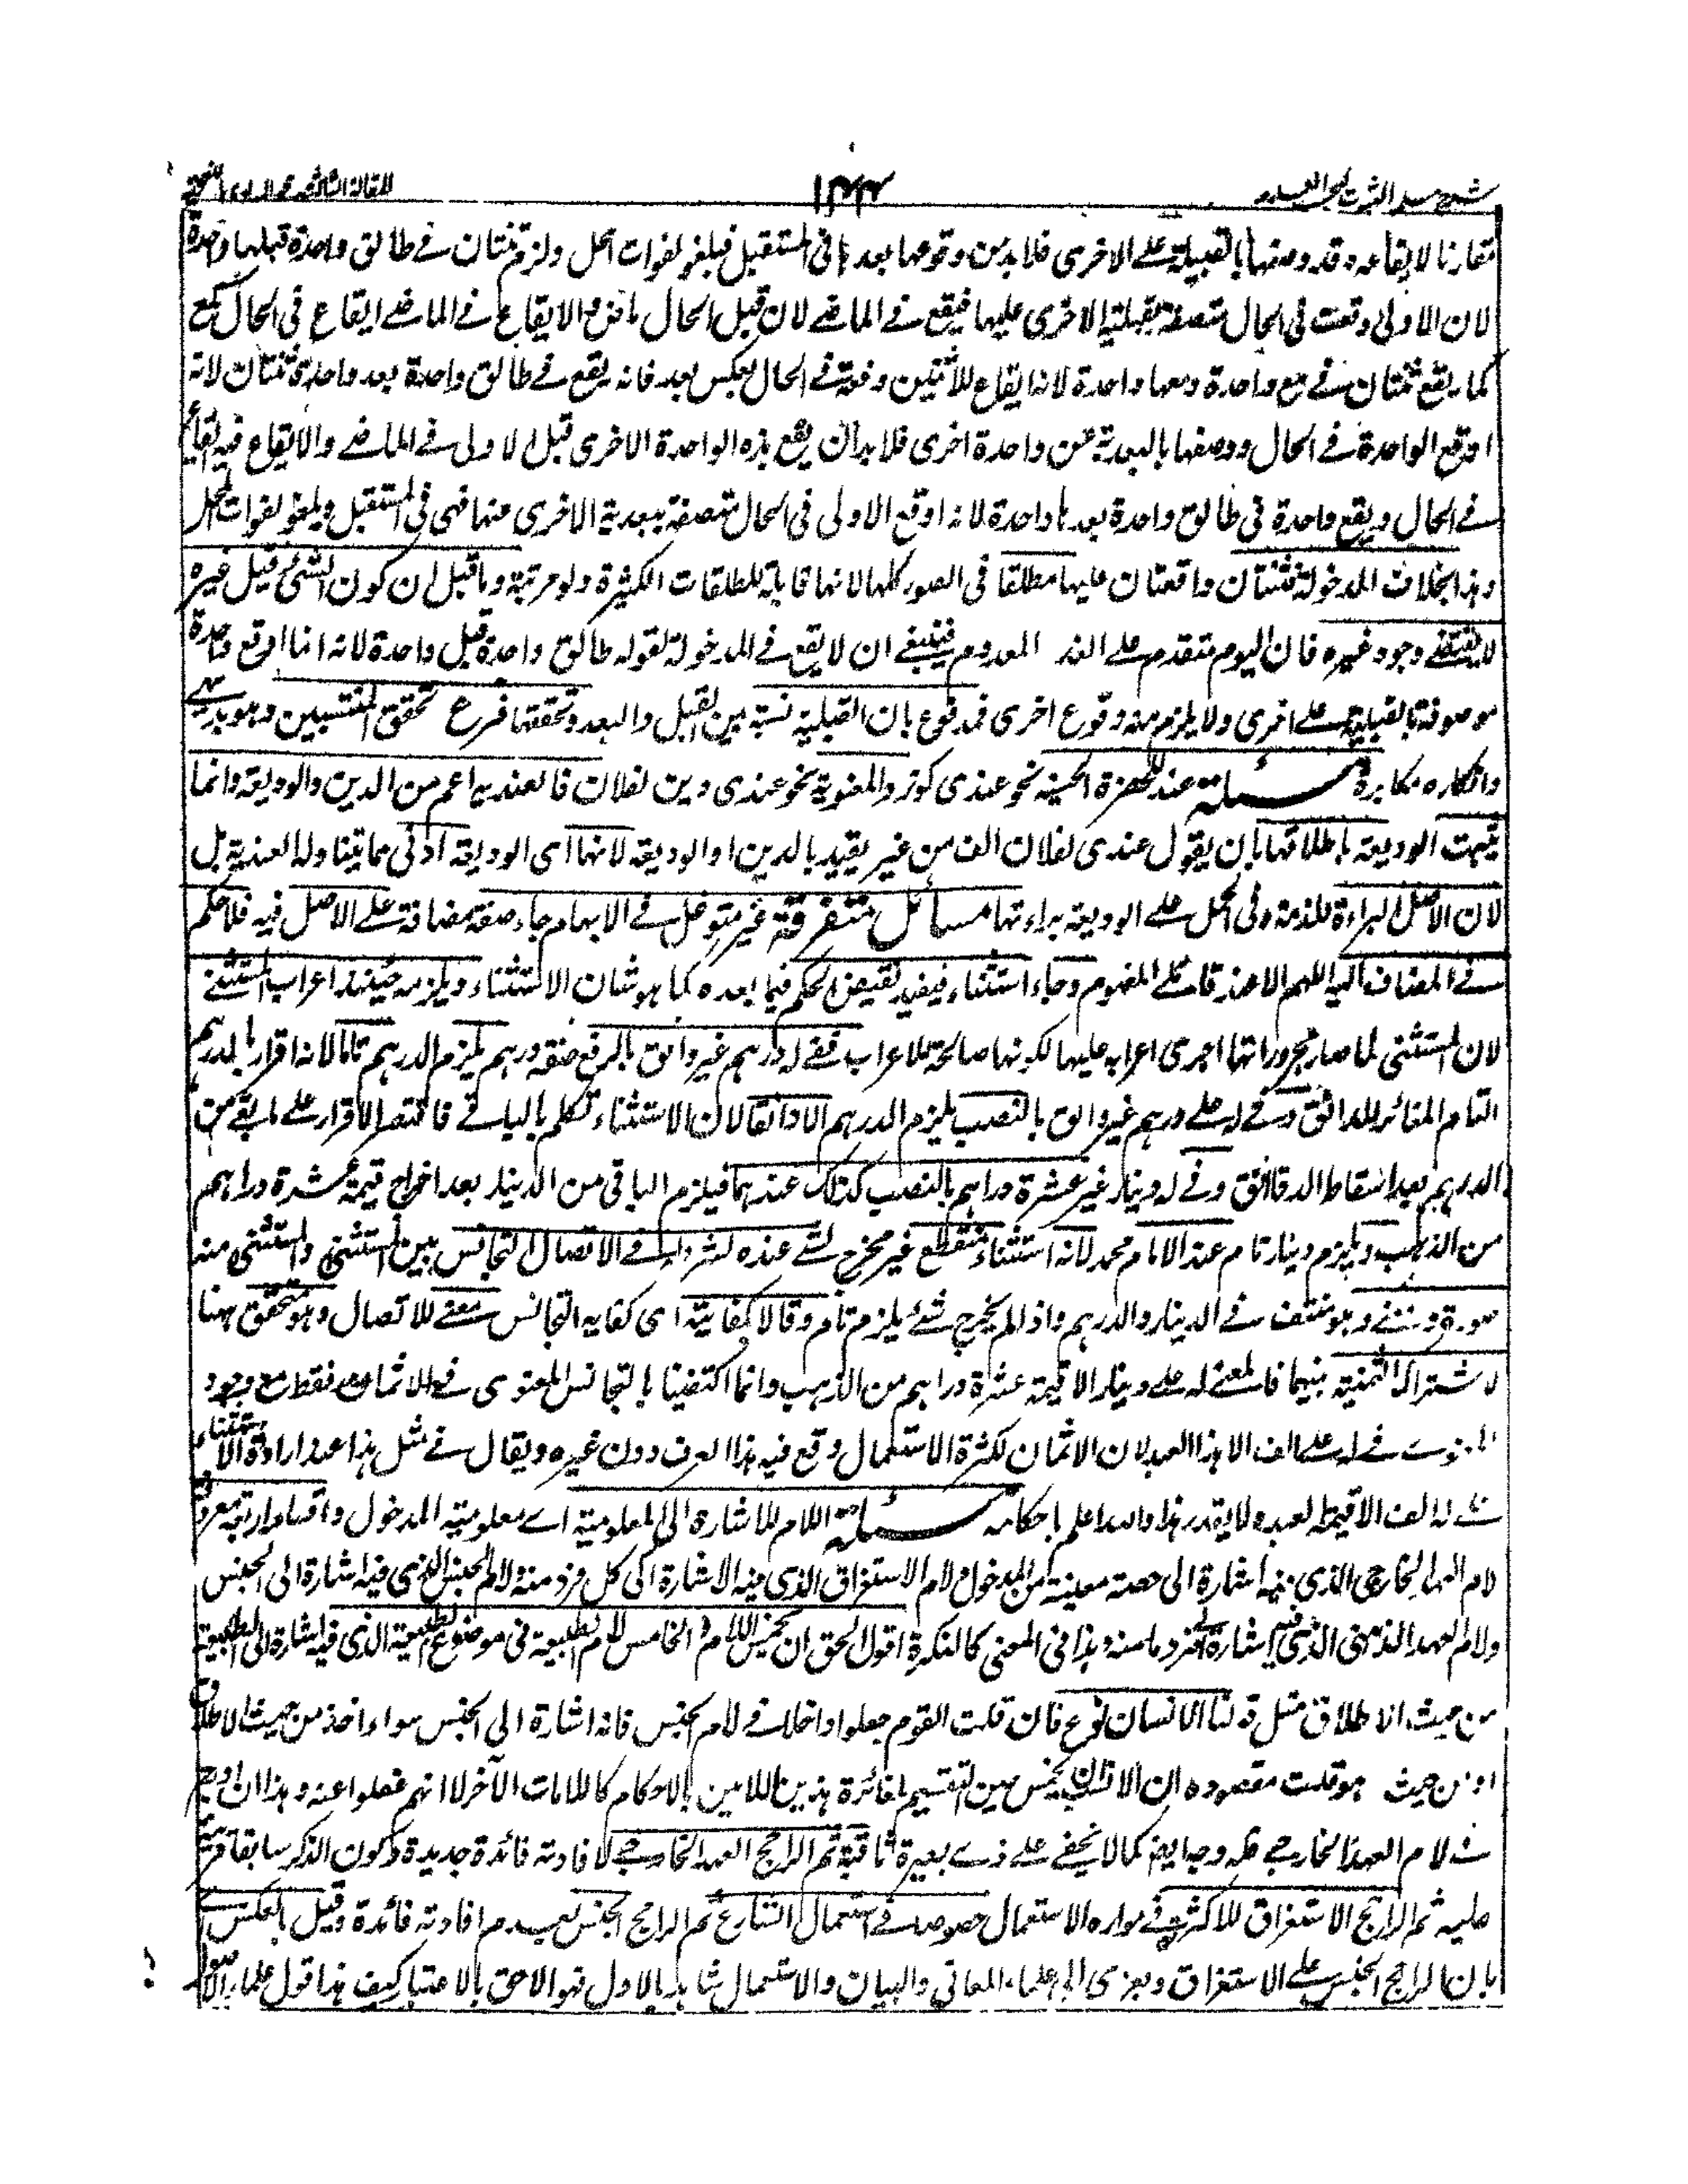 شرح مسلم الثبوت لبحر العلوم ١٤٤ المقالة الثالثة
مقارنا لايقاعه وقد وصفها بالقبلية على الاخرى فلا بد من وقوعها بعدها فى المستقبل فيلغو لفوات المحل ولزم ثنتان فى طالق واحدة قبلها واحدة
لان الاولى وقعت فى الحال متصفة بقبلية الاخرى عليها فيقع فى الماضى لان قبل الحال ماض والايقاع فى الماضى ايقاع فى الحال كمع
كما يقع ثنتان فى مع واحدة ومعها واحدة لانه ايقاع للاثنين دفعة فى الحال بعكس بعد فانه يقع فى طالق واحدة بعد واحدة ثنتان لانه
اوقع الواحدة فى الحال ووصفها بالبعدية عن واحدة اخرى فلا بد ان يقع هذه الواحدة الاخرى قبل الاولى فى الماضى والايقاع فيه ايقاع
فى الحال ويقع واحدة فى طالق واحدة بعدها واحدة لانه اوقع الاولى فى الحال متصفة ببعدية الاخرى منها فهى فى المستقبل ويلغو لفوات المحل
وهذا بخلاف المدخولة فثنتان واقعتان عليها مطلقا فى الصور كلها لانها قابلة للطلقات الكثيرة ولو مرتبة وما قيل ان كون الشئ قبل غيره
لا يقتضى وجود غيره فان اليوم متقدم على الغد المعدوم فينبغى ان لا يقع فى المدخولة لقوله طالق واحدة قبل واحدة لانه انما اوقع واحدة
موصوفة بالقبلية على اخرى ولا يلزم منه وقوع اخرى فمدفوع بان القبلية نسبة بين القبل والبعد وتحققها فرع تحقق المنتسبين وهو بديهى
وانكاره مكابرة مسئلة عند للحضرة الحسية نحو عندى كوز والمعنوية نحو عندى دين لفلان فالعندية اعم من الدين والوديعة وانما
يثبت الوديعة باطلاقها بان يقول عندى لفلان الف من غير تقييد بالدين او الوديعة لانها اى الوديعة ادنى مما يتناوله العندية بل
لان الاصل البراءة للذمة وفى الحمل على الوديعة براءتها مسائل متفرقة غير متوغل فى الابهام جاء صفة مضافة على الاصل فيه فلا حكم
فى المضاف اليه اللهم الا عند قائلى المفهوم وجاء استثناء فيفيد نقيض الحكم فيما بعده كما هو شان الاستثناء ويلزمه حينئذ اعراب المستثنى
لان المستثنى لما صار مجرورا انتها اجرى اعرابه عليها لكونها صالحة للاعراب ففى له درهم غير دانق بالرفع صفة درهم يلزم الدرهم تاما لانه اقرار بالدرهم
التام المغائر للدانق وفى له على درهم غير دانق بالنصب يلزم الدرهم الا دانقا لان الاستثناء تكلم بالباقى فاقتصر الاقرار على ما بقى من
الدرهم بعد اسقاط الدانق وفى له دينار غير عشرة دراهم بالنصب كذلك عندهما فيلزم الباقى من الدينار بعد اخراج قيمة عشرة دراهم
من الذهب ويلزم دينار تام عند الامام محمد لانه استثناء منقطع غير مخرج لشئ عنده لشرطه فى الاتصال التجانس بين المستثنى والمستثنى منه
صورة ومعنى وهو منتف فى الدينار والدرهم واذا لم يخرج شئ يلزم تام وقالا كفاية اى كفاية التجانس معنى للاتصال وهو متحقق ههنا
لاشتراك الثمنية بينهما فالمعنى له على دينار الا قيمة عشرة دراهم من الذهب وانما اكتفينا بالتجانس المعنوى فى الاثمان فقط مع وجود
المعنوى فى له على الف الا هذا العبد لان الاثمان لكثرة الاستعمال وقع فيه هذا العرف دون غيره ويقال فى مثل هذا عند ارادة الاستثناء
له الف الا قيمة لعبده ولا يقدر هذا والله اعلم باحكامه مسئلة اللام للاشارة الى المعلومية اى معلومية المدخول واقسامها اربعة معرف
لام العهد الخارجى الذى فيه اشارة الى حصة معينة من المدخول ولام الاستغراق الذى فيه الاشارة الى كل فرد منه ولام الجنس الذى فيه اشارة الى الجنس
ولام العهد الذهنى الذى فيه اشارة لفرد ما منه وهذا فى المعنى كالنكرة اقول الحق ان يخمس اللام والخامس لام الطبيعة فى موضوع الطبيعية الذى فيه اشارة الى الطبيعة
من حيث الاطلاق مثل قولنا الانسان نوع فان قلت القوم جعلوا داخلا فى لام الجنس فانه اشارة الى الجنس سواء اخذ من حيث الاطلاق
او من حيث هو قلت مقصوده ان الانسب يخمس حين التقسيم لمغائرة هذين اللامين بالاحكام كاللامات الآخر لا انهم غفلوا عنه وهذا ان
لام العهد الخارجى فله وجه ايضا كما لا يخفى على ذى بصيرة ثاقبة ثم الراجح العهد الخارجى لافادته فائدة جديدة وكون الذكر سابقا قرينة
عليه ثم الراجح الاستغراق للاكثرية فى موارد الاستعمال خصوصا فى استعمال الشارع ثم الراجح الجنس لعدم افادته فائدة وقيل بالعكس
بان الراجح الجنس على الاستغراق ويعزى الى علماء المعانى والبيان والاستعمال شاهد بالاول فهو الاحق بالاعتبار كيف هذا قول علماء الاصول